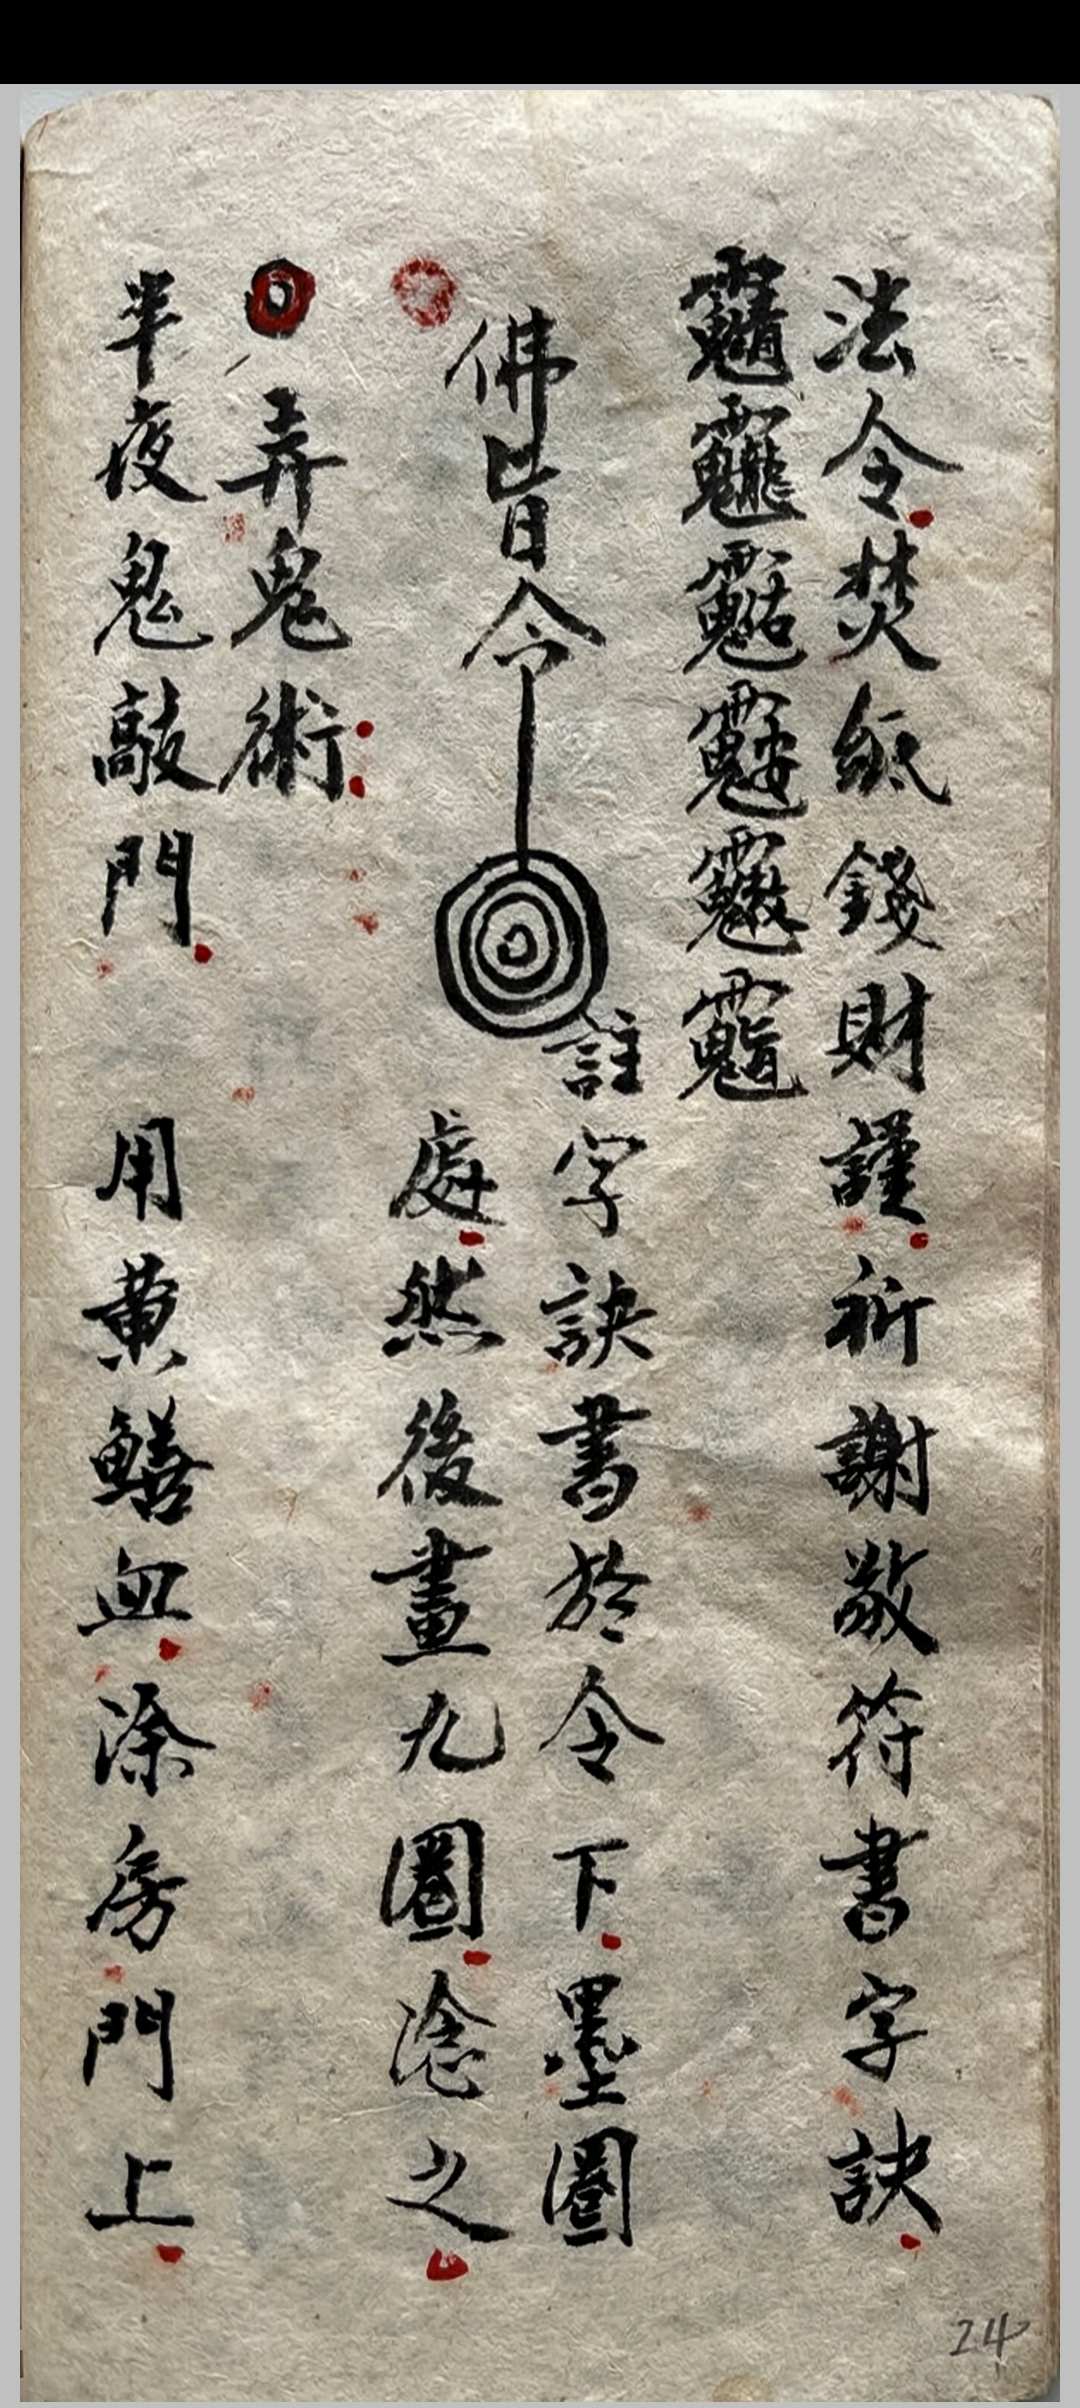 法令焚紙錢財謹祈謝敬符書字訣
佛旨令
註字訣書於令下墨圈
處然後畫九圈淰之
弄鬼術
半夜鬼敲門 用黃鱔血涂房門上
24